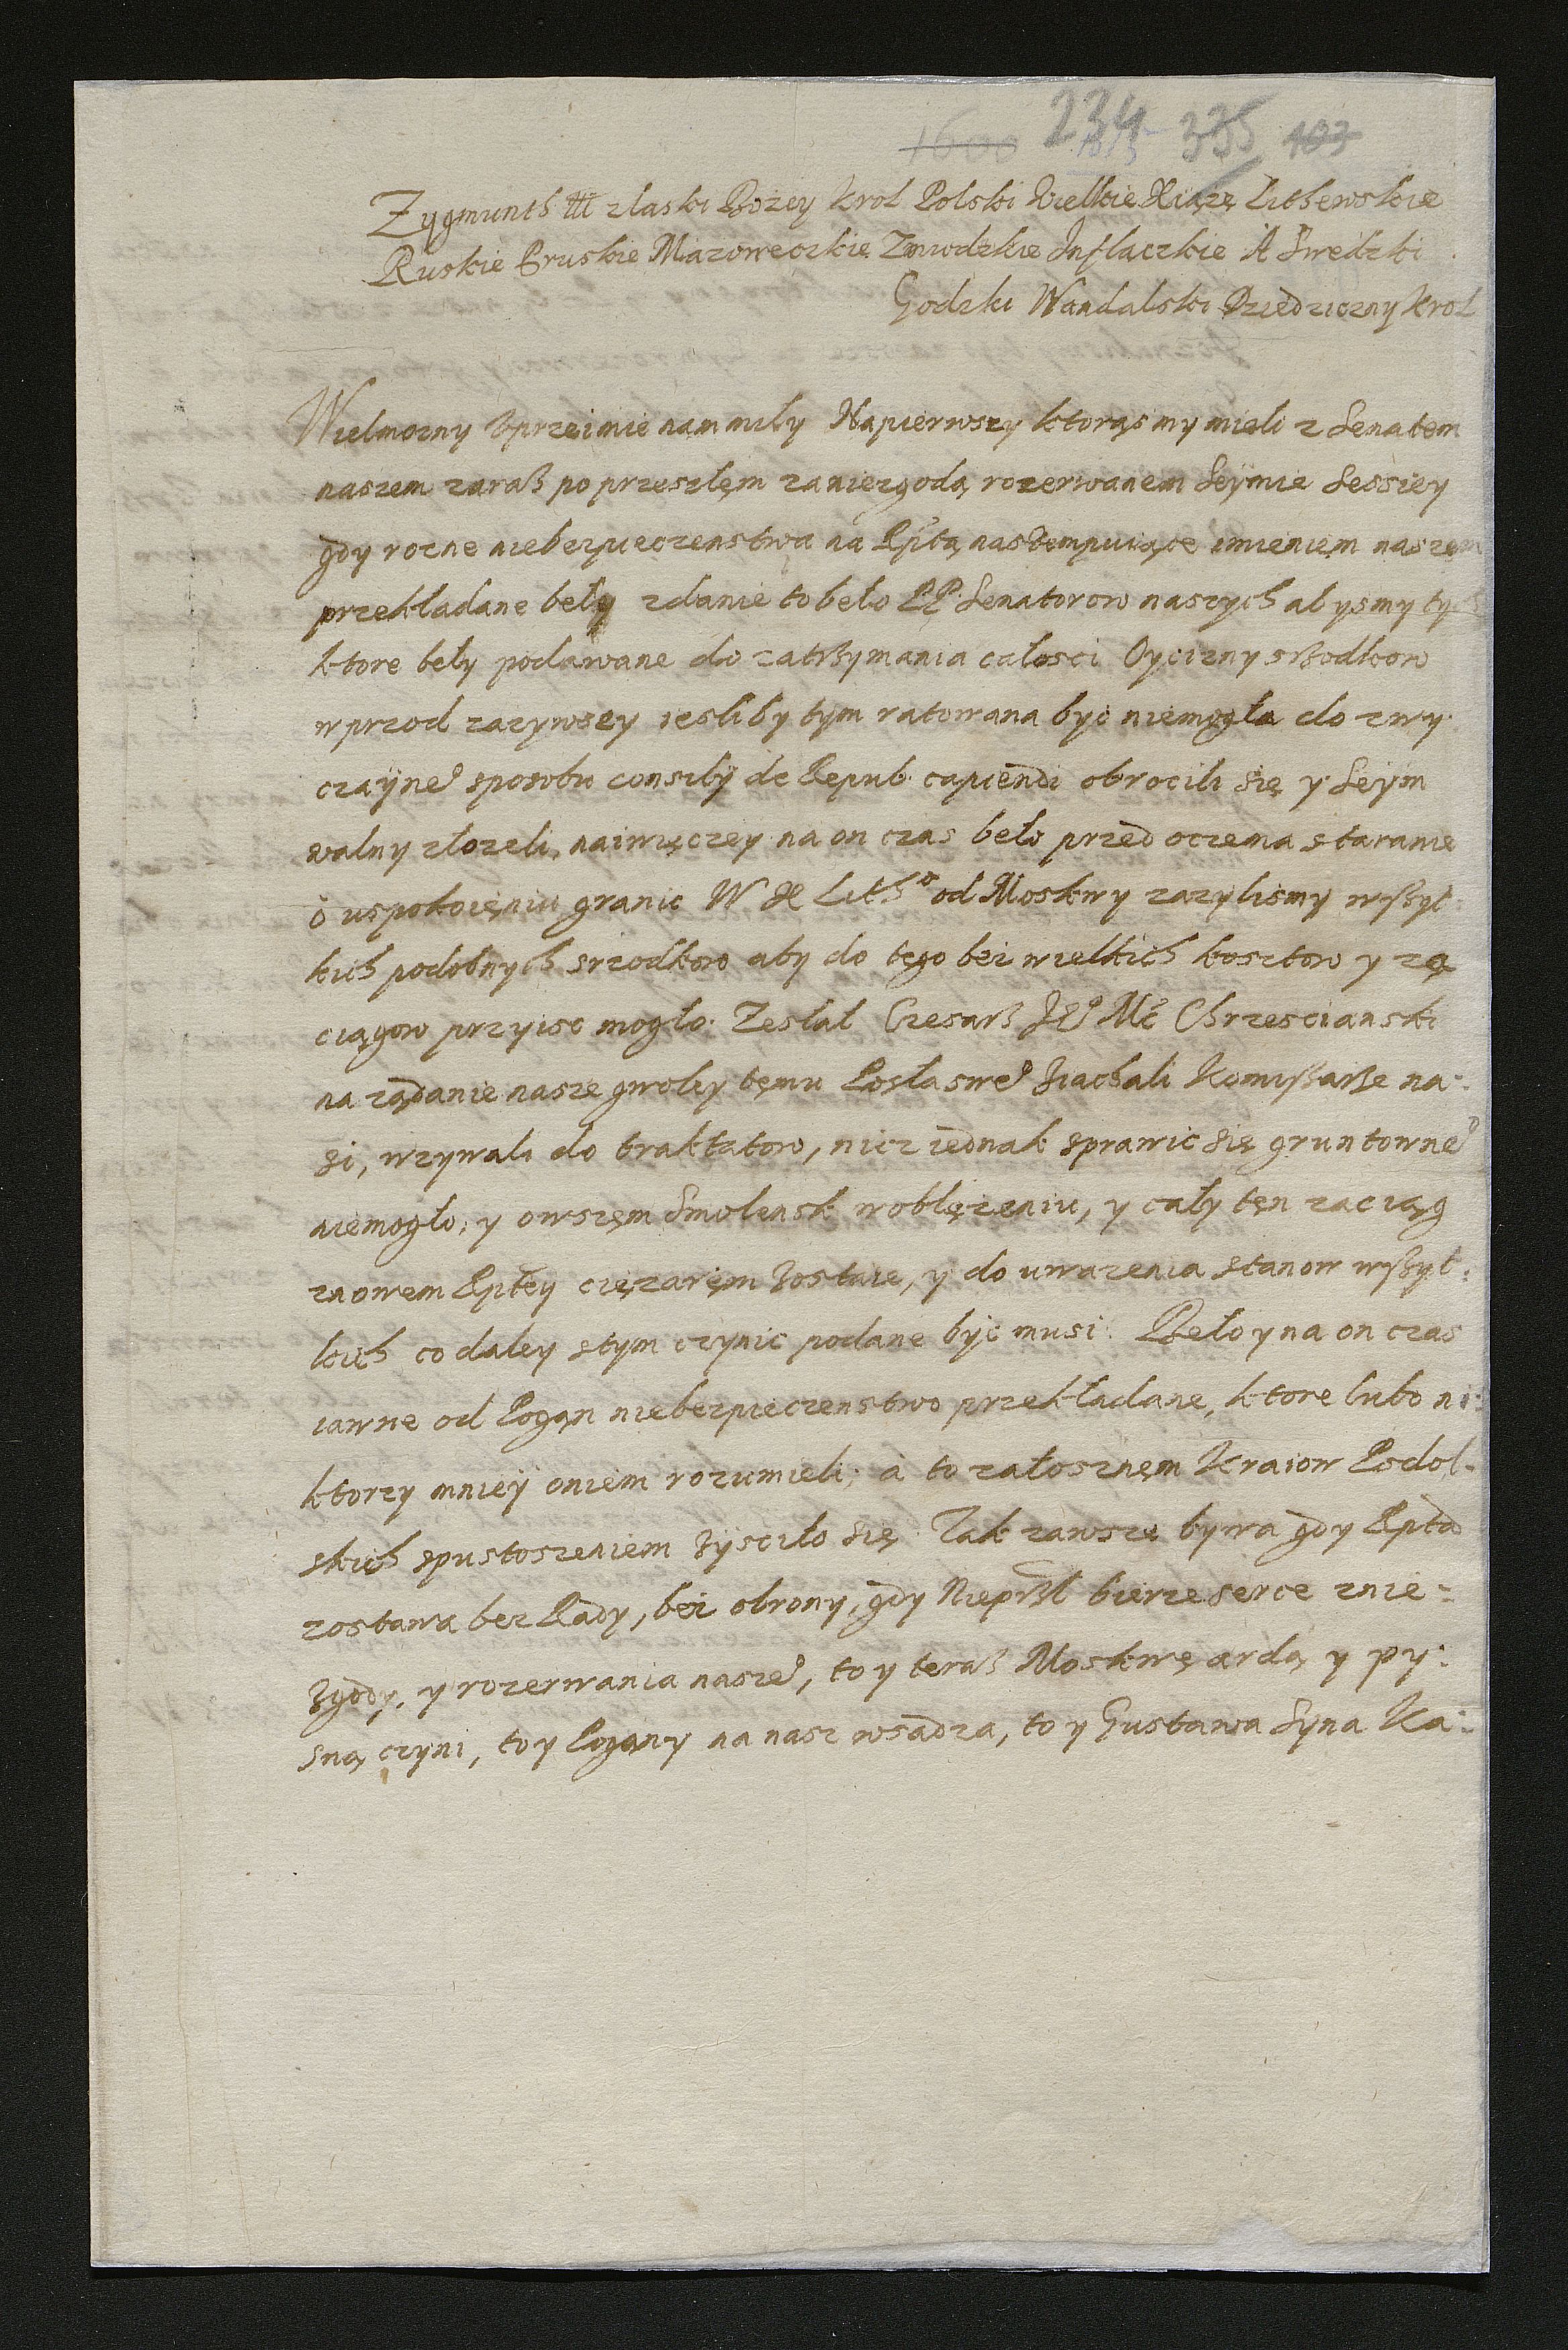 1600 234 335 103
Zygmunth III z laski Bozey Krol Polski Wielkie Xiązę Lithewskie
Ruskie Pruskie Mazoweczkie Zmudzkie Inflaczkie A Swedzki
Godzki Wandalski Dziedziczny Krol
Wielmozny Uprzeimie nam miły Napierwszy ktorąsmy mieli z Senatem
naszem zaraß po przeszłęm za niezgodą rozerwanem Seÿmie Sessiey
gdy rozne niebezpieczenstwa na Rptą nastempuiące imieniem naszem
przekładane beły zdanie to beło PP. Senatorow naszych abysmy tych
ktore beły podawane do zatrßymania całosci Oycizny srßodkow
wprzod zazywszy iesliby tym ratowana być niemogła do zwy
czaÿne° sposobu consilÿ de Repub. capiendi obrocili się y Seÿm
walny złozeli, naiwięczey na on czas beło przed oczema staranie
o uspokoięniu granic W X Lith° od Moskwy zazylismy wßyt
kich podobnych srzodkow aby do tego bez wielkich kosztow y zą
ciągow przyisc mogło. Zesłał Czesarß Je° Mć Chrzescianski
na ządanie nasze gwoley tęmu Posła swe° Ziachali Komißarße na:
si, wzywali do traktatow, nicz iednak sprawic się gruntowne°
niemogło, y owszęm Smolensk w oblęzeniu, y cały tęn zaciąg
znowem Rptey cięzaręm zostaie, y do uwazenia stanow wßyt:
kich co daley stym czynic podane być musi. Beło y na on czas
iawne od Pogąn niebezpieczenstwo przekładane, ktore lubo nie:
ktorzy mnieÿ oniem rozumieli; a to załosznęm Kraiow Podol:
skich spustoszeniem zÿsciło się. Tak zawsze bywa gdy Rpta
zostawa bez Rady, bez obrony, gdy Nieprßl bierze serce znie:
zgody, y rozerwania nasze°, to y teraß Moskwę ardą y py:
sną czyni, to y Pogany na nasz wsadza, to y Gustawa Syna Ka: